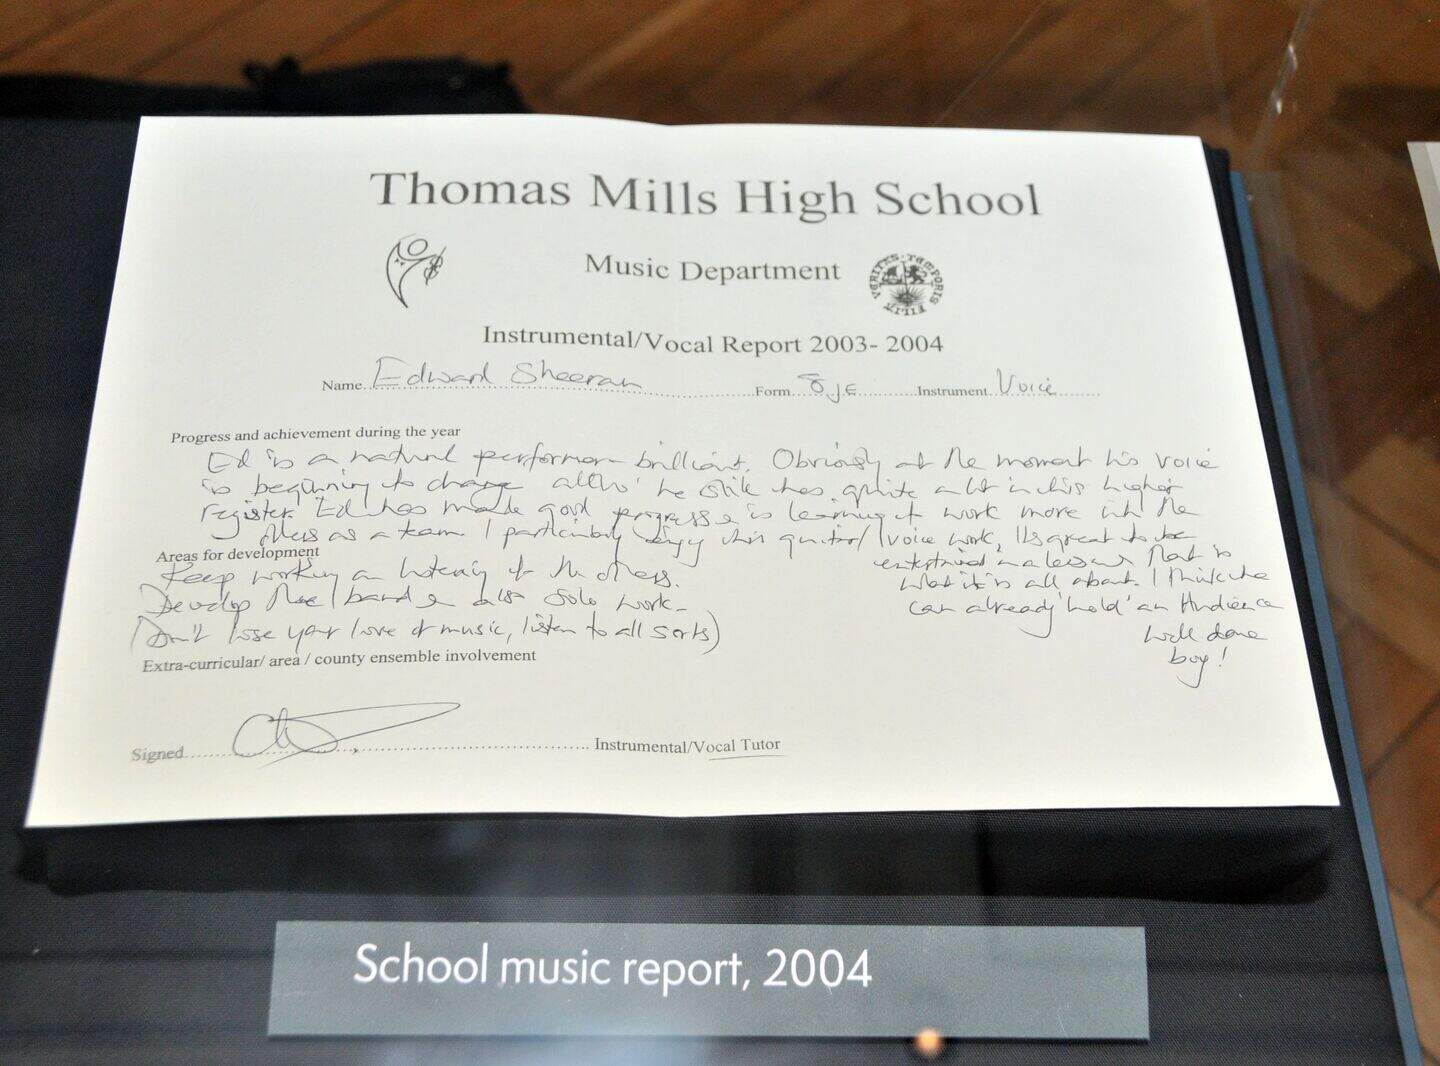 Thomas Mills High School
Music Department
VERITAS TEMPORIS FILIA
Instrumental/Vocal Report 2003- 2004
Name Edward Sheeran Form 8JE Instrument Voice
Progress and achievement during the year
Ed is a natural performer - brilliant. Obviously at the moment his voice
is beginning to change altho' he still has quite a bit in his higher
register. Ed has made good progress & is learning to work more with the
others as a team. I particularly enjoy his guitar/voice work, its great to be
entertained in a lesson that is
what it is all about. I think he
can already 'hold' an Audience
Well done
boy!
Areas for development
Keep working on listening to the others.
Develop the band & also solo work -
(Don't lose your love of music, listen to all sorts)
Extra-curricular/ area / county ensemble involvement
Signed Instrumental/Vocal Tutor
School music report, 2004